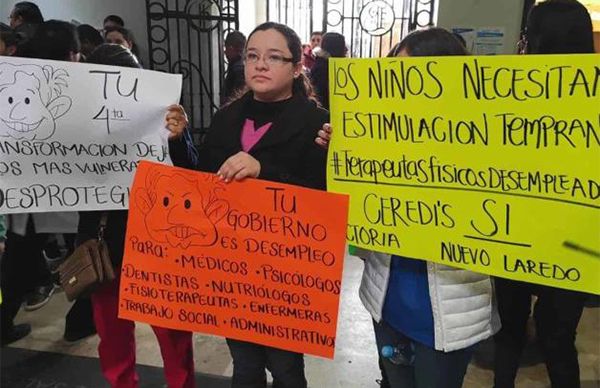 TU
4ta
OS MAS VULNERA
DESPROTEGI
TU
GOBIERNO
ES DESEMPLEO
PARA: • MÉDICOS • PSICÓLOGOS
• DENTISTAS • NUTRIÓLOGOS
• FISIOTERAPEUTAS • ENFERMERAS
• TRABAJO SOCIAL • ADMINISTRATIVO
LOS NIÑOS NECESITAN
ESTIMULACION TEMPRAN
#TERAPEUTASFISICOSDESEMPLEAD
CEREDI'S SI
CTORIA NUEVO LAREDO